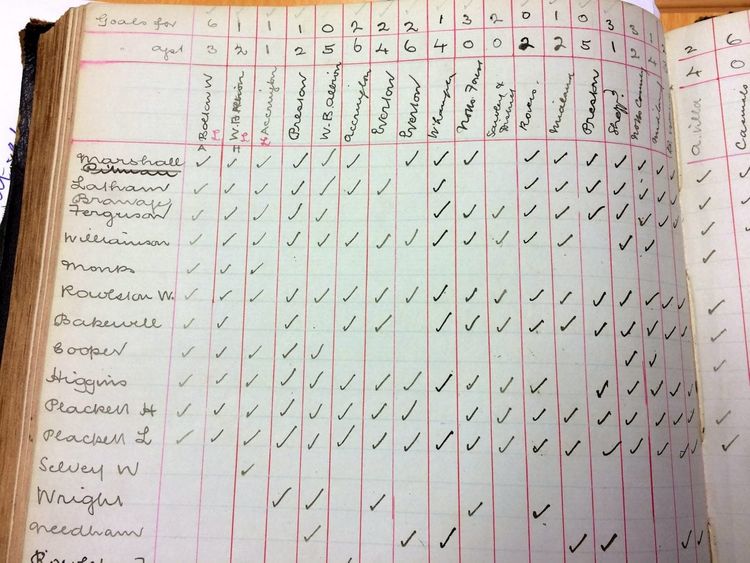 Goals for 6 1 1 1 0 2 2 2 1 3 2 0 1 0 3 3 1 2 6
" agst 3 2 1 2 5 6 4 6 4 0 0 2 2 5 1 2 4 4 0
A Bolton W H W. B Albion H Accrington Preston W. B Albion Accrington Everton Everton Notts Forest Rovers Midland Preston Sheff? Notts County A. Villa
Marshall
Latham
Ferguson
Williamson
Monks
Rowlston W.
Bakewell
Cooper
Higgins
Plackett H
Plackett L
Selvey W
Wright
Needham